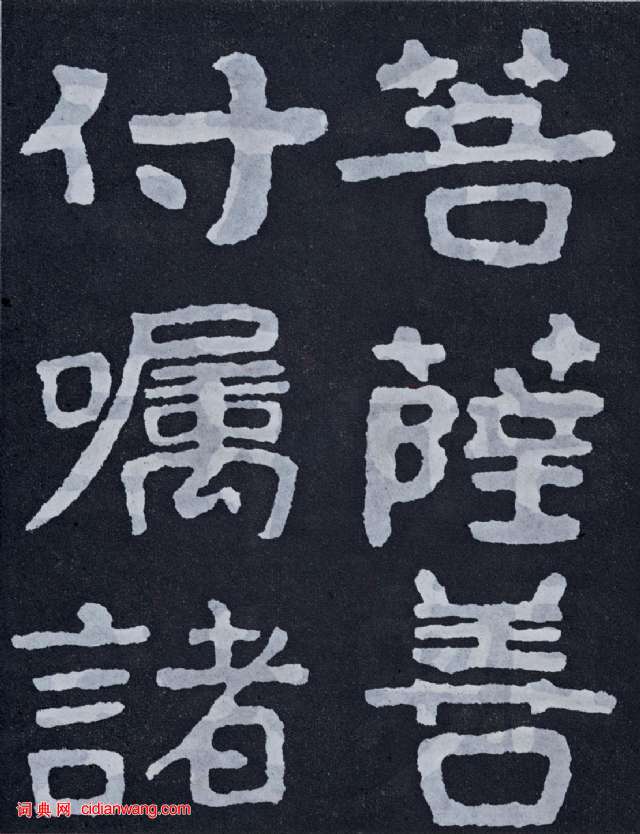 菩薩善
付嘱諸
词典网 cidianwang.com